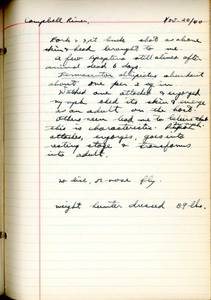 Campbell River, Nov. 20/40
Fork & spit buck shot as above
skin & head brought to me
A few Lipoptena still alive after
animal dead 6 days.
Dermacentor albipictus abundant
about one per sq in
Watched one attached & engorged
nymph shed its skin & emerge
as an adult on the host.
Others seen lead me to believe that
this is characteristic. Nymph
attaches, engorges, goes into
resting stage & transforms
into adult.
no lice, or nose fly.
weight hunter dressed 89 lbs.